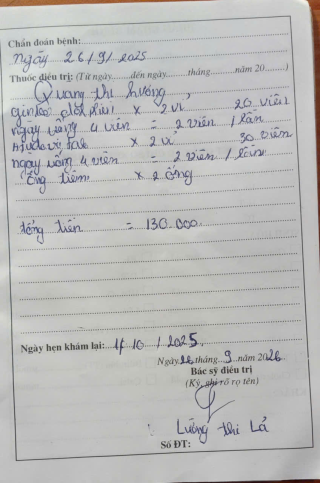 Chẩn đoán bệnh:
Ngày 26/9/2025
Thuốc điều trị: (Từ ngày......đến ngày......tháng......năm 20......)
Quang thị hương
x 2 vỉ 20 viên
ngày uống 4 viên = 2 viên / lần
x 2 vỉ 30 viên
ngày uống 4 viên = 2 viên / lần
ống tiêm x 2 ống
tổng tiền = 130.000
Ngày hẹn khám lại: 1/10/2025
Ngày 26 tháng 9 năm 2026
Bác sỹ điều trị
(Ký, ghi rõ họ tên)
Lường thi Lả
Số ĐT: